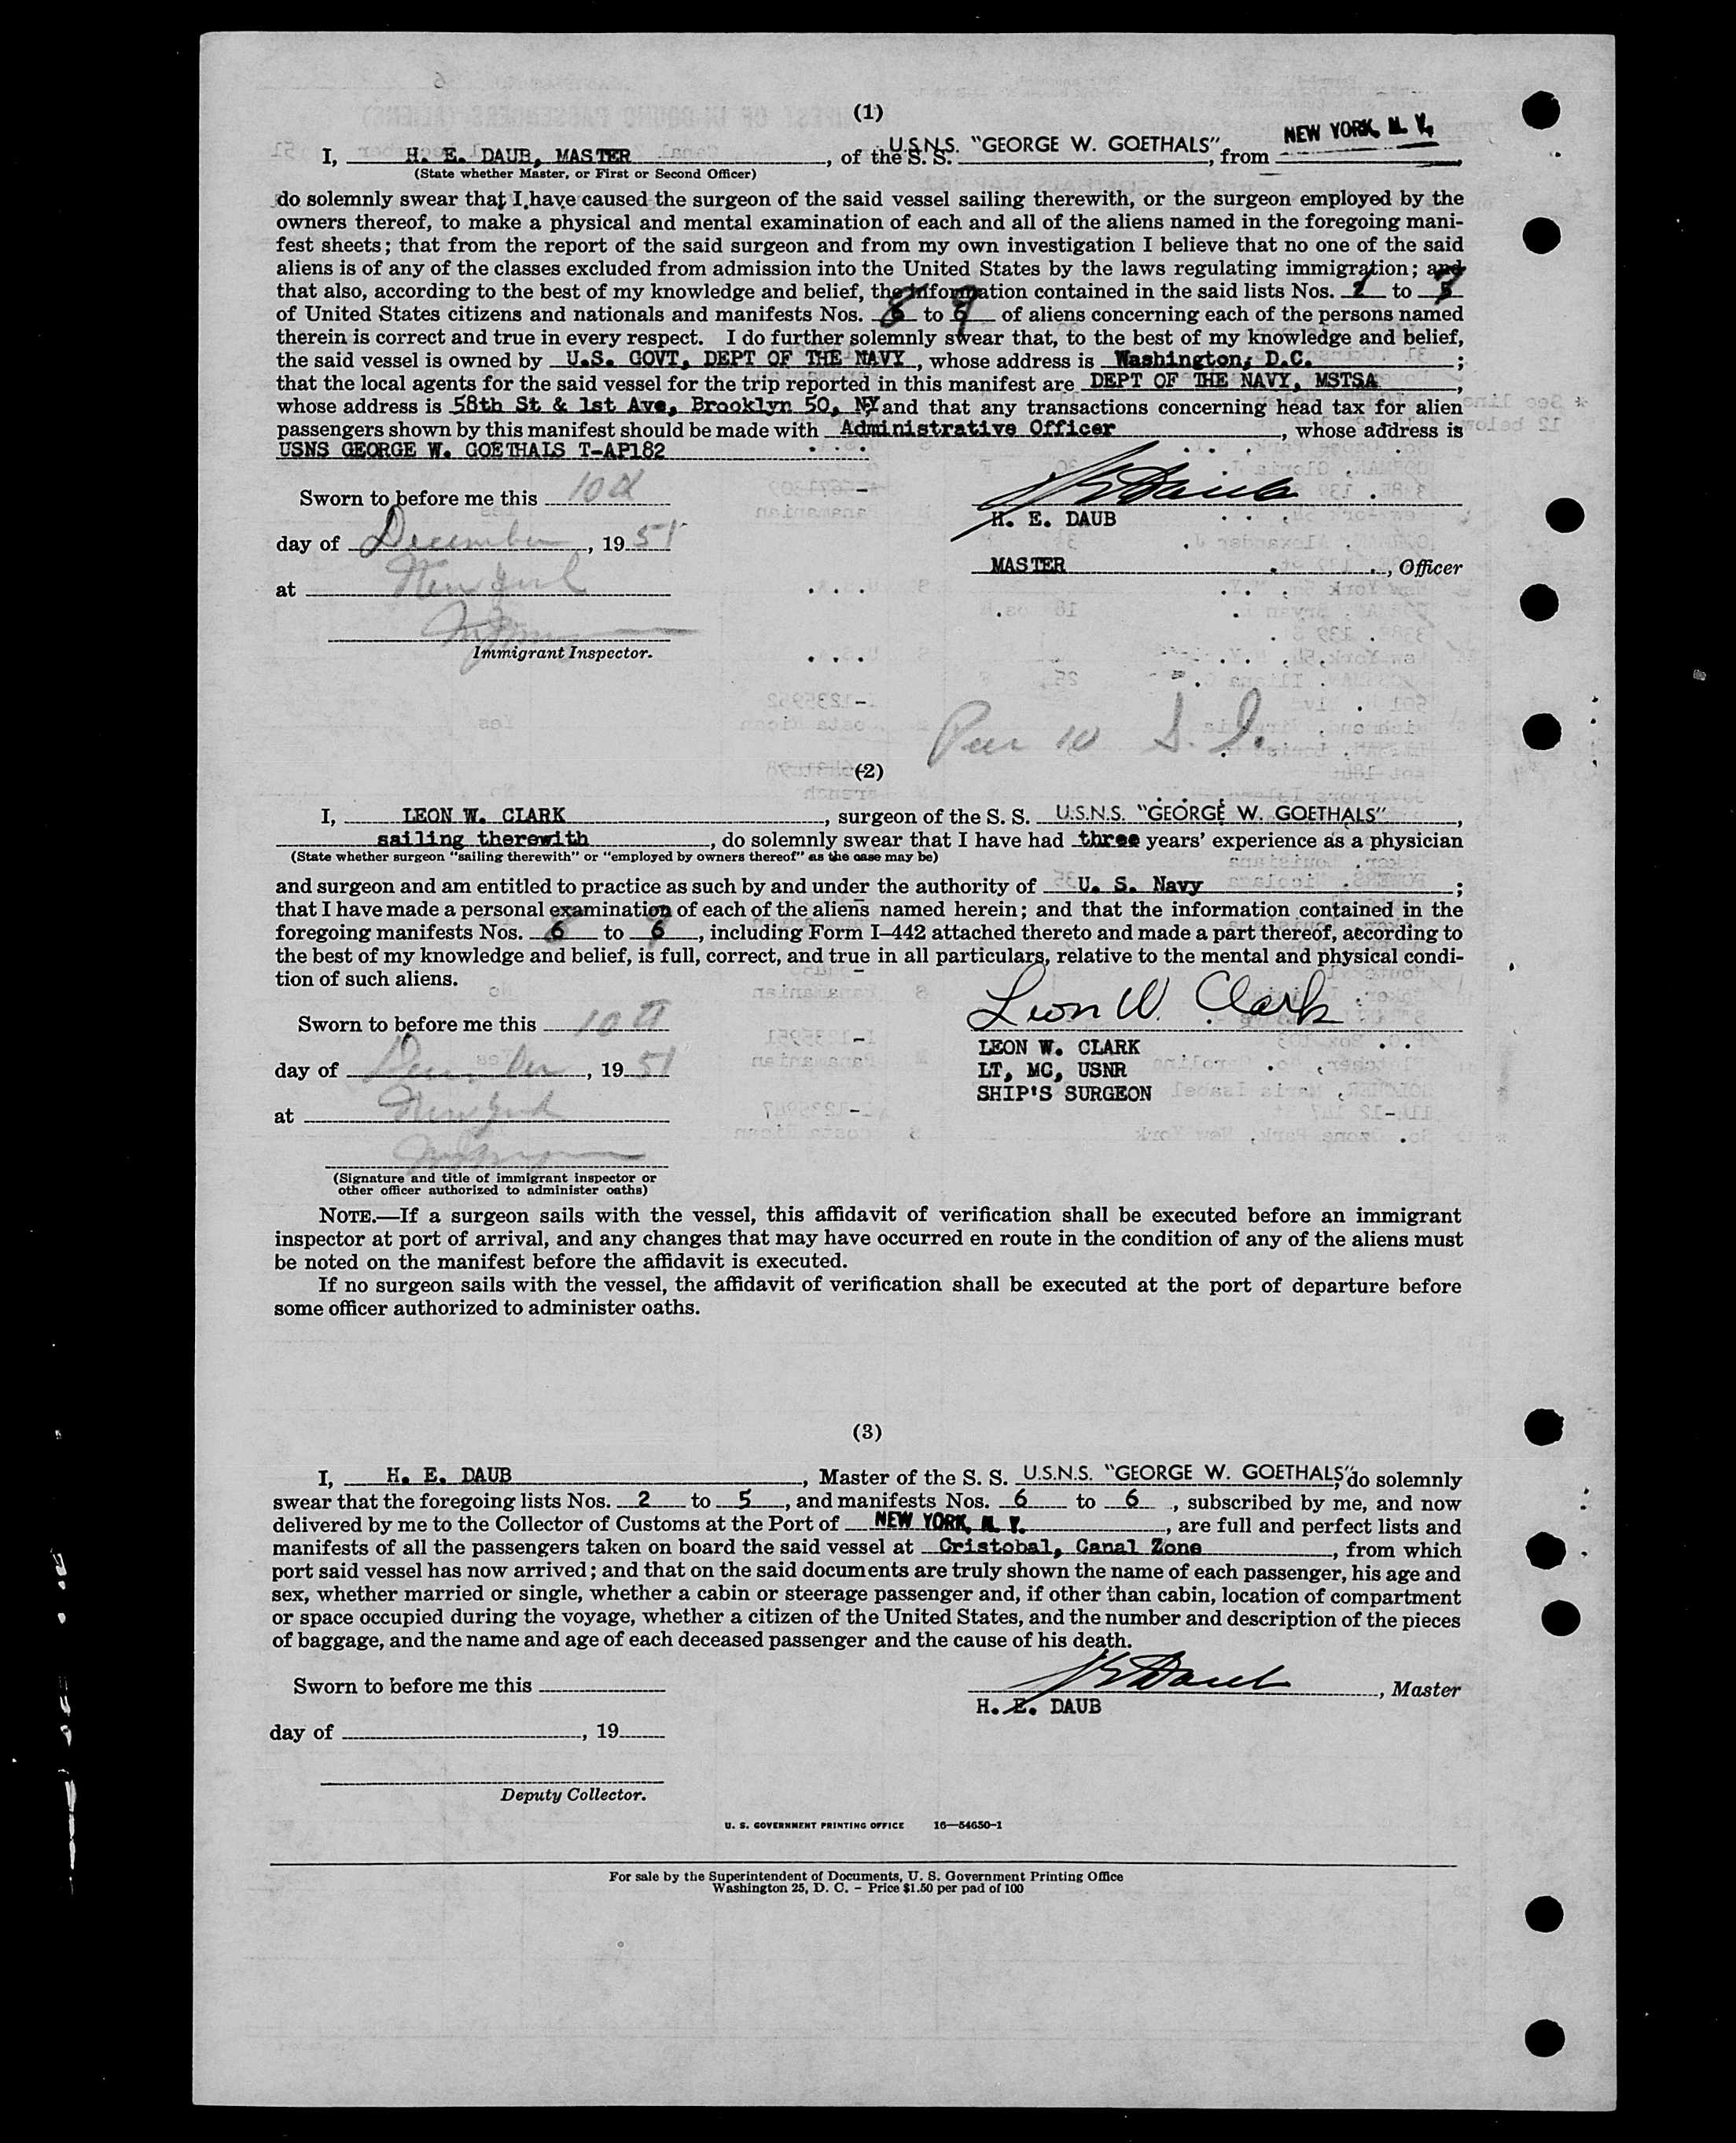 (1)
I, H. E. DAUB, MASTER, of the S. S. U.S.N.S. "GEORGE W. GOETHALS", from NEW YORK, N. Y.
(State whether Master, or First or Second Officer)
do solemnly swear that I have caused the surgeon of the said vessel sailing therewith, or the surgeon employed by the
owners thereof, to make a physical and mental examination of each and all of the aliens named in the foregoing mani-
fest sheets; that from the report of the said surgeon and from my own investigation I believe that no one of the said
aliens is of any of the classes excluded from admission into the United States by the laws regulating immigration; and
that also, according to the best of my knowledge and belief, the information contained in the said lists Nos. to
of United States citizens and nationals and manifests Nos. 8 to 9 of aliens concerning each of the persons named
therein is correct and true in every respect. I do further solemnly swear that, to the best of my knowledge and belief,
the said vessel is owned by U.S. GOVT, DEPT OF THE NAVY, whose address is Washington, D.C. ;
that the local agents for the said vessel for the trip reported in this manifest are DEPT OF THE NAVY, MSTSA ,
whose address is 58th St & 1st Ave, Brooklyn 50, NY and that any transactions concerning head tax for alien
passengers shown by this manifest should be made with Administrative Officer , whose address is
USNS GEORGE W. GOETHALS T-AP182
Sworn to before me this 10th
H. E. DAUB
day of December, 1951
MASTER , Officer
at New York
Immigrant Inspector.
(2)
I, LEON W. CLARK , surgeon of the S. S. U.S.N.S. "GEORGE W. GOETHALS" ,
sailing therewith , do solemnly swear that I have had three years' experience as a physician
(State whether surgeon "sailing therewith" or "employed by owners thereof" as the case may be)
and surgeon and am entitled to practice as such by and under the authority of U. S. Navy ;
that I have made a personal examination of each of the aliens named herein; and that the information contained in the
foregoing manifests Nos. 6 to 6 , including Form I-442 attached thereto and made a part thereof, according to
the best of my knowledge and belief, is full, correct, and true in all particulars, relative to the mental and physical condi-
tion of such aliens.
Leon W. Clark
Sworn to before me this 10th
LEON W. CLARK
day of December, 1951
LT, MC, USNR
SHIP'S SURGEON
at New York
(Signature and title of immigrant inspector or
other officer authorized to administer oaths)
NOTE.—If a surgeon sails with the vessel, this affidavit of verification shall be executed before an immigrant
inspector at port of arrival, and any changes that may have occurred en route in the condition of any of the aliens must
be noted on the manifest before the affidavit is executed.
If no surgeon sails with the vessel, the affidavit of verification shall be executed at the port of departure before
some officer authorized to administer oaths.
(3)
I, H. E. DAUB , Master of the S. S. U.S.N.S. "GEORGE W. GOETHALS", do solemnly
swear that the foregoing lists Nos. 2 to 5 , and manifests Nos. 6 to 6 , subscribed by me, and now
delivered by me to the Collector of Customs at the Port of NEW YORK, N. Y. , are full and perfect lists and
manifests of all the passengers taken on board the said vessel at Cristobal, Canal Zone , from which
port said vessel has now arrived; and that on the said documents are truly shown the name of each passenger, his age and
sex, whether married or single, whether a cabin or steerage passenger and, if other than cabin, location of compartment
or space occupied during the voyage, whether a citizen of the United States, and the number and description of the pieces
of baggage, and the name and age of each deceased passenger and the cause of his death.
Sworn to before me this
, Master
H. E. DAUB
day of , 19
Deputy Collector.
U. S. GOVERNMENT PRINTING OFFICE 16—54650-1
For sale by the Superintendent of Documents, U. S. Government Printing Office
Washington 25, D. C. - Price $1.50 per pad of 100